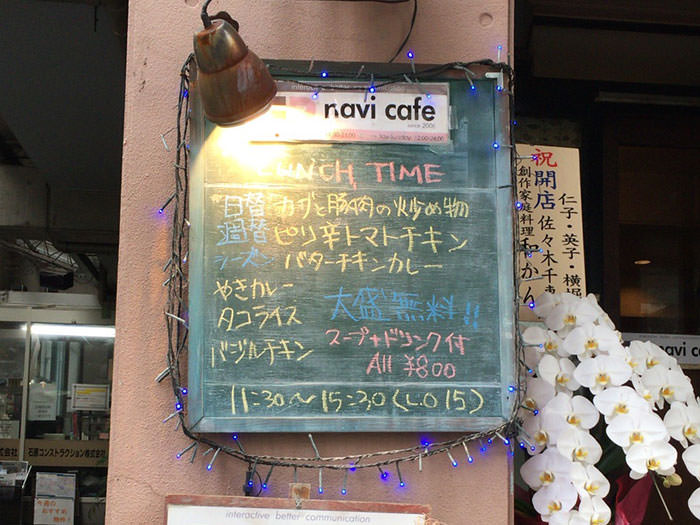 navi cafe
since 2006
LUNCH TIME
"日替" カブと豚肉の炒め物
週替 ピリ辛トマトチキン
シーズン バターチキンカレー
やきカレー
タコライス
バジルチキン
大盛無料!!
スープ+ドリンク付
All ¥800
11:30～15:30(L.O 15)
interactive better communication
祝開店
仁子・英子・横堀
佐々木千
創作家庭料理
かん
navi c
石原コンストラクション株式会社